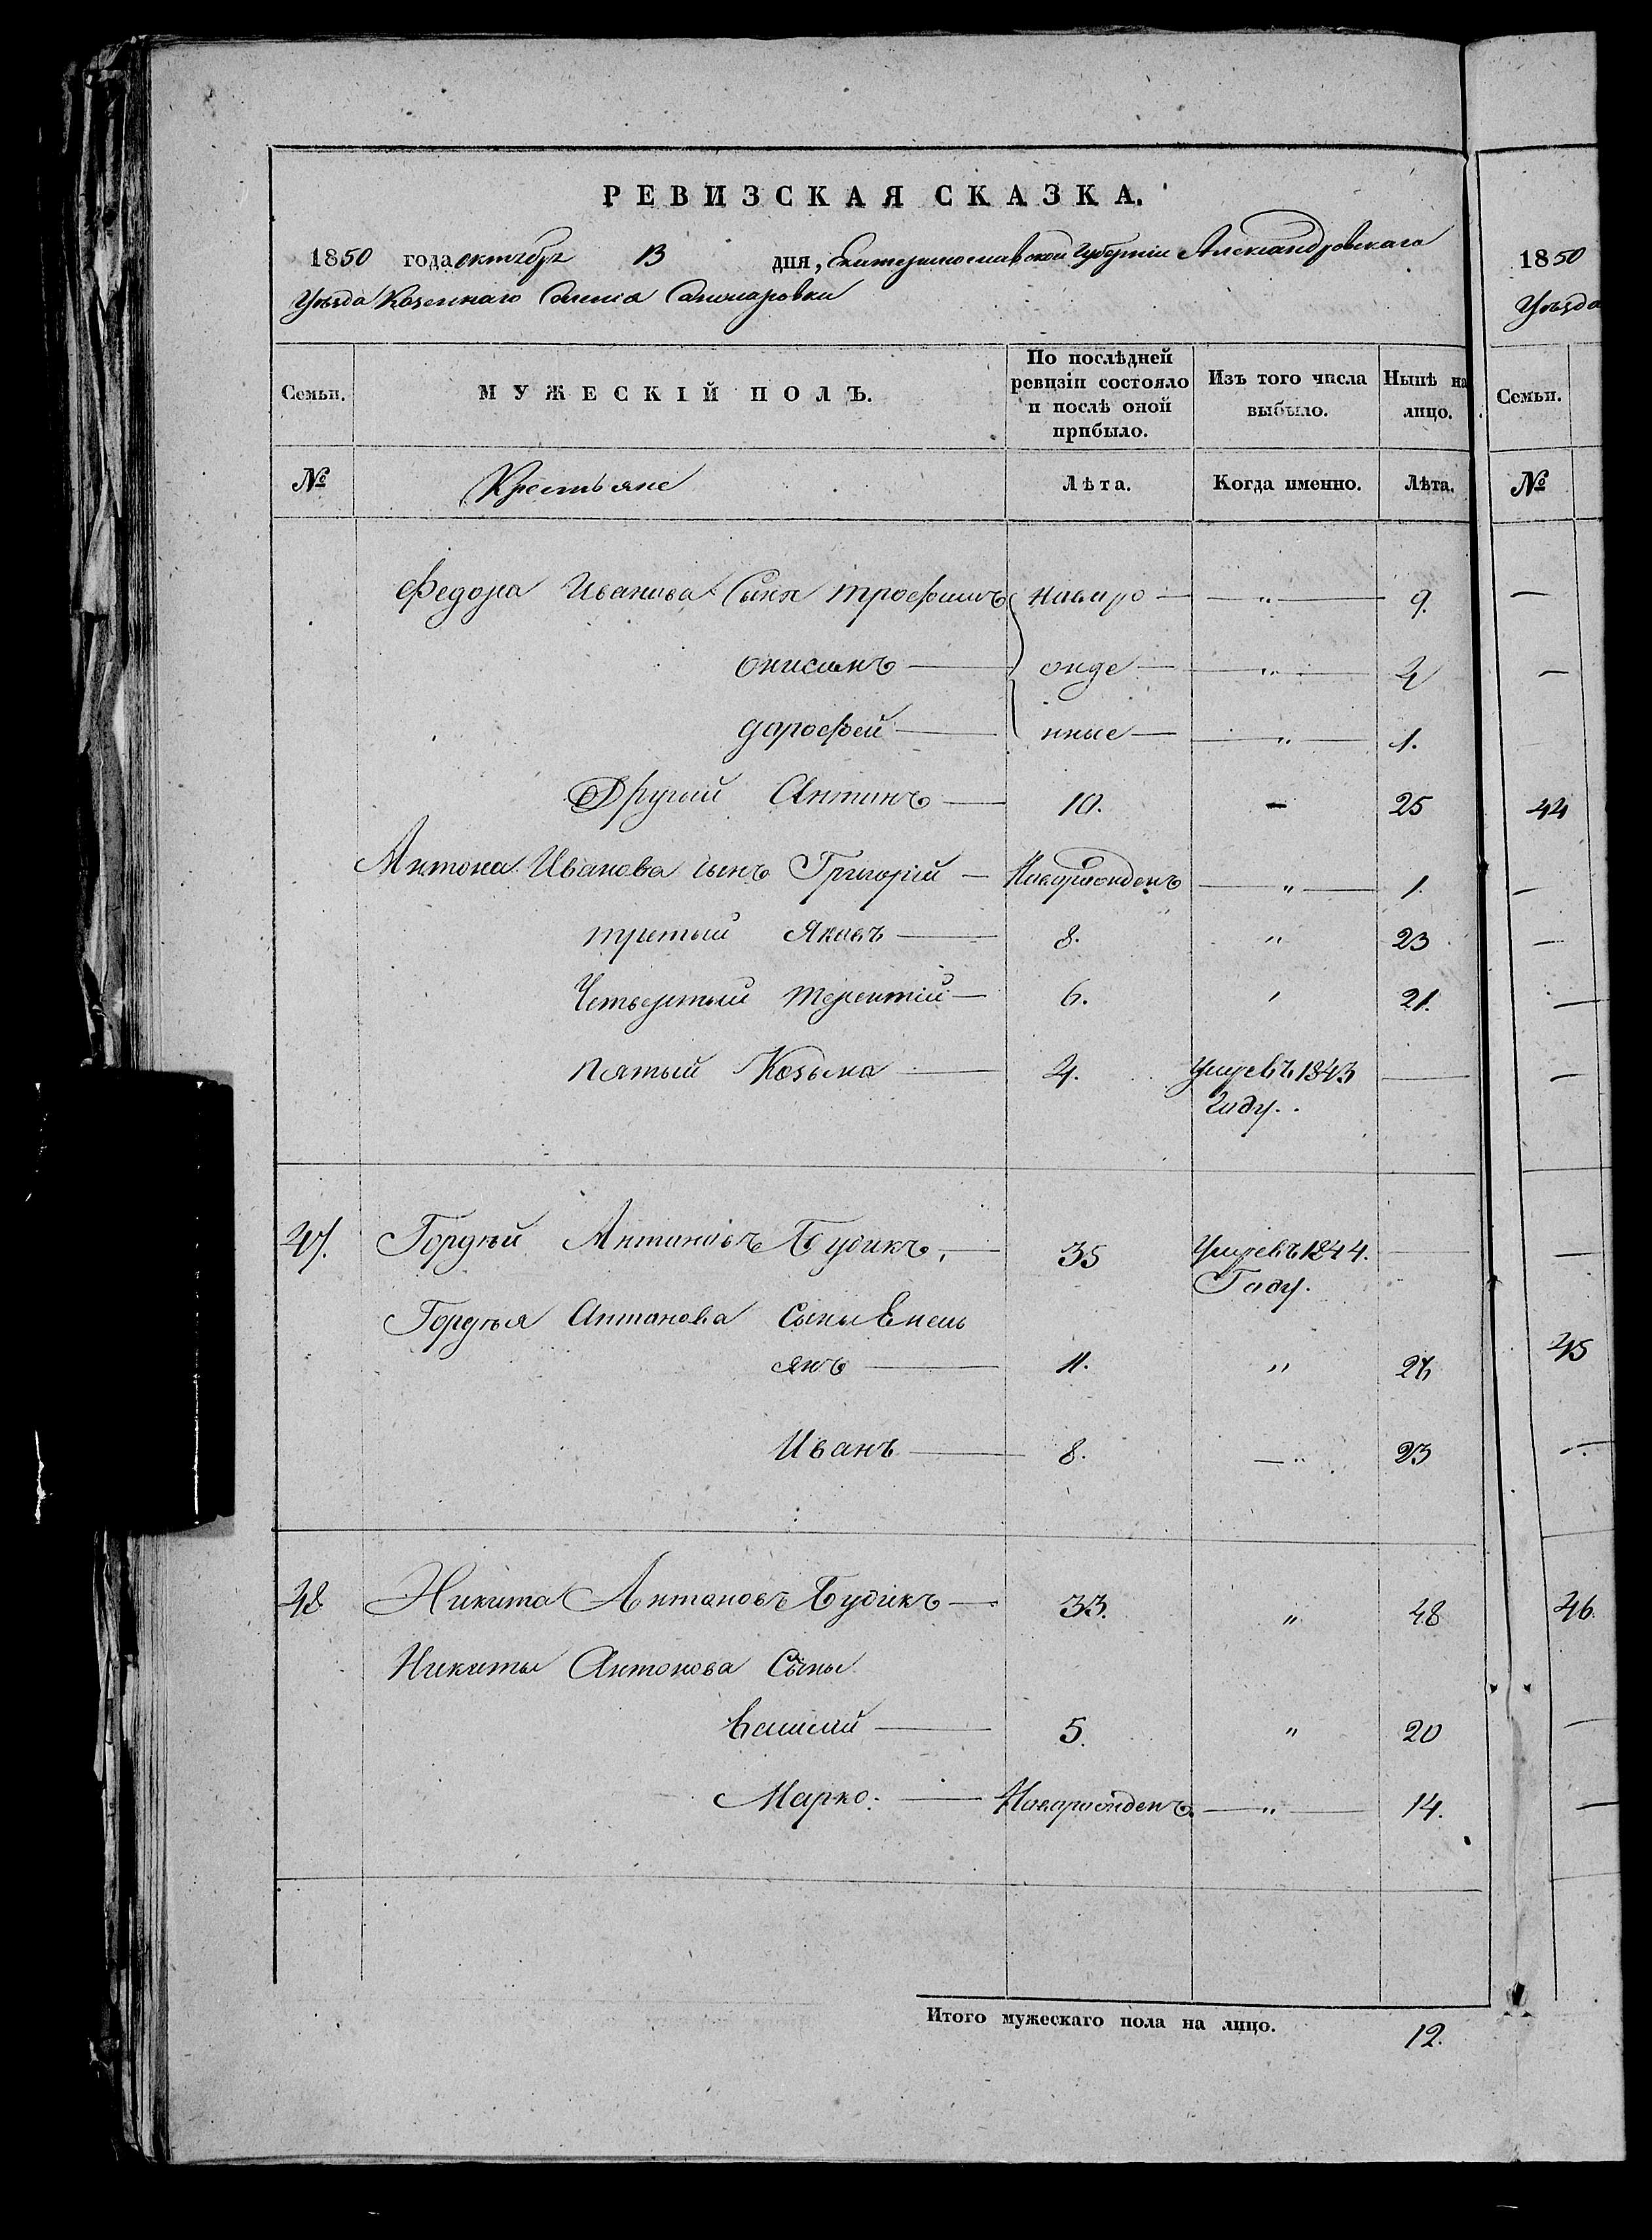 РЕВИЗСКАЯ СКАЗКА.
1850 года октября 13 дня, Екатеринославской Губерніи Александровскаго
Уѣзда Казеннаго Селенія
Семьи. МУЖЕСКІЙ ПОЛЪ. По послѣдней ревизіи состояло и послѣ оной прибыло. Изъ того числа выбыло. Нынѣ на лицо.
№ Крестьяне Лѣта. Когда именно. Лѣта.
Федора Иванова Сыны трофимъ новаро — " — 9.
онисимъ — онде — " — 4
дорофей — нные — " — 1.
Другий Антонъ — 10. - 25
Антона Иванова сынъ Григорій — Новорожденъ — " — 1.
третий Яковъ — 8. " 23
Четвертый терентій — 6. " 21.
пятый Козьма — 4. умре въ 1843 —
Году.
47. Гордѣй Антоновъ Будикъ. — 35 Умре въ 1844. —
Году.
Гордѣя Антонова Сыны Емель
янъ — 11. " 26
Иванъ — 8. — " 23
48 Никита Антоновъ Будикъ — 33. " 48
Никиты Антонова Сыны
Василій — 5. " 20
Марко. — Новорожденъ — " — 14.
Итого мужескаго пола на лицо. 12.
1850
Уѣзда
Семьи.
№
44
45
46.